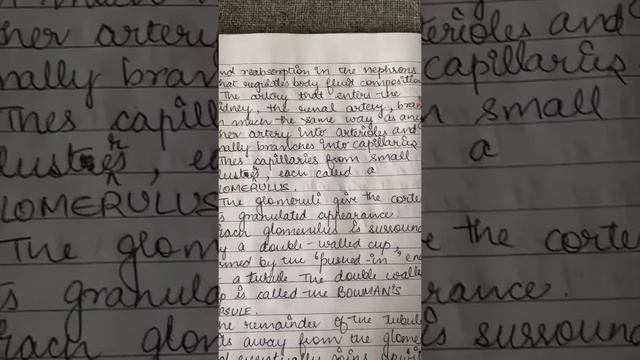 nd reabsorption in the nephrons
hat regulates body fluid compositio
The artery that enters the
idney, the renal artery, bran
n much the same way as any
her artery into arterioles and
nally branches into capillaries.
Thes capillaries from small
lustrs, each called a
LOMERULUS.
The glomeruli give the corte
s granulated appearance.
ach glomerulus is surroun
y a double-walled cup,
med by the "pushed-in" en
a tubule The double walle
p is called the BOWMAN'S
SULE.
he remainder of the tubul
ds away from the glome